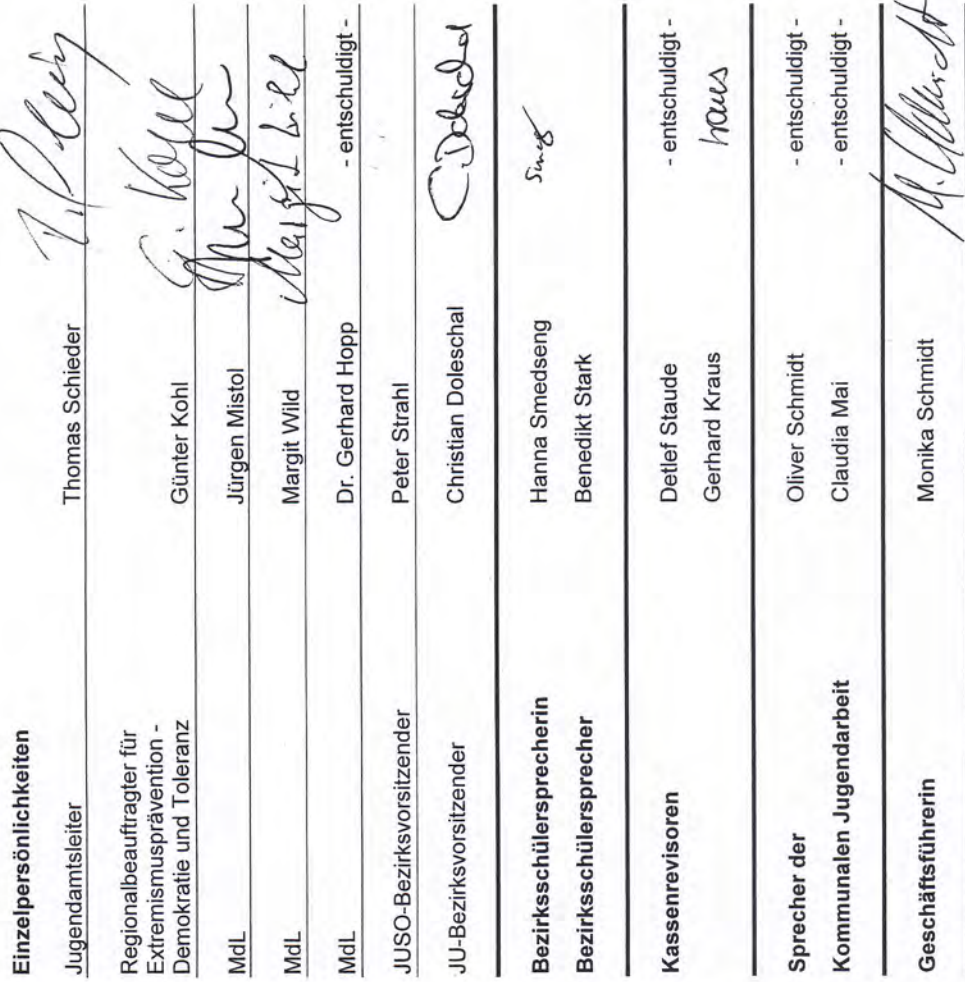 Einzelpersönlichkeiten
Jugendamtsleiter Thomas Schieder
Regionalbeauftragter für
Extremismusprävention -
Demokratie und Toleranz Günter Kohl G. Kohl
MdL Jürgen Mistol
MdL Margit Wild Margit Wild
MdL Dr. Gerhard Hopp - entschuldigt -
JUSO-Bezirksvorsitzender Peter Strahl
JU-Bezirksvorsitzender Christian Doleschal C. Doleschal
Bezirksschülersprecherin Hanna Smedseng
Bezirksschülersprecher Benedikt Stark
Kassenrevisoren Detlef Staude - entschuldigt -
Gerhard Kraus Kraus
Sprecher der Oliver Schmidt - entschuldigt -
Kommunalen Jugendarbeit Claudia Mai - entschuldigt -
Geschäftsführerin Monika Schmidt M. Schmidt